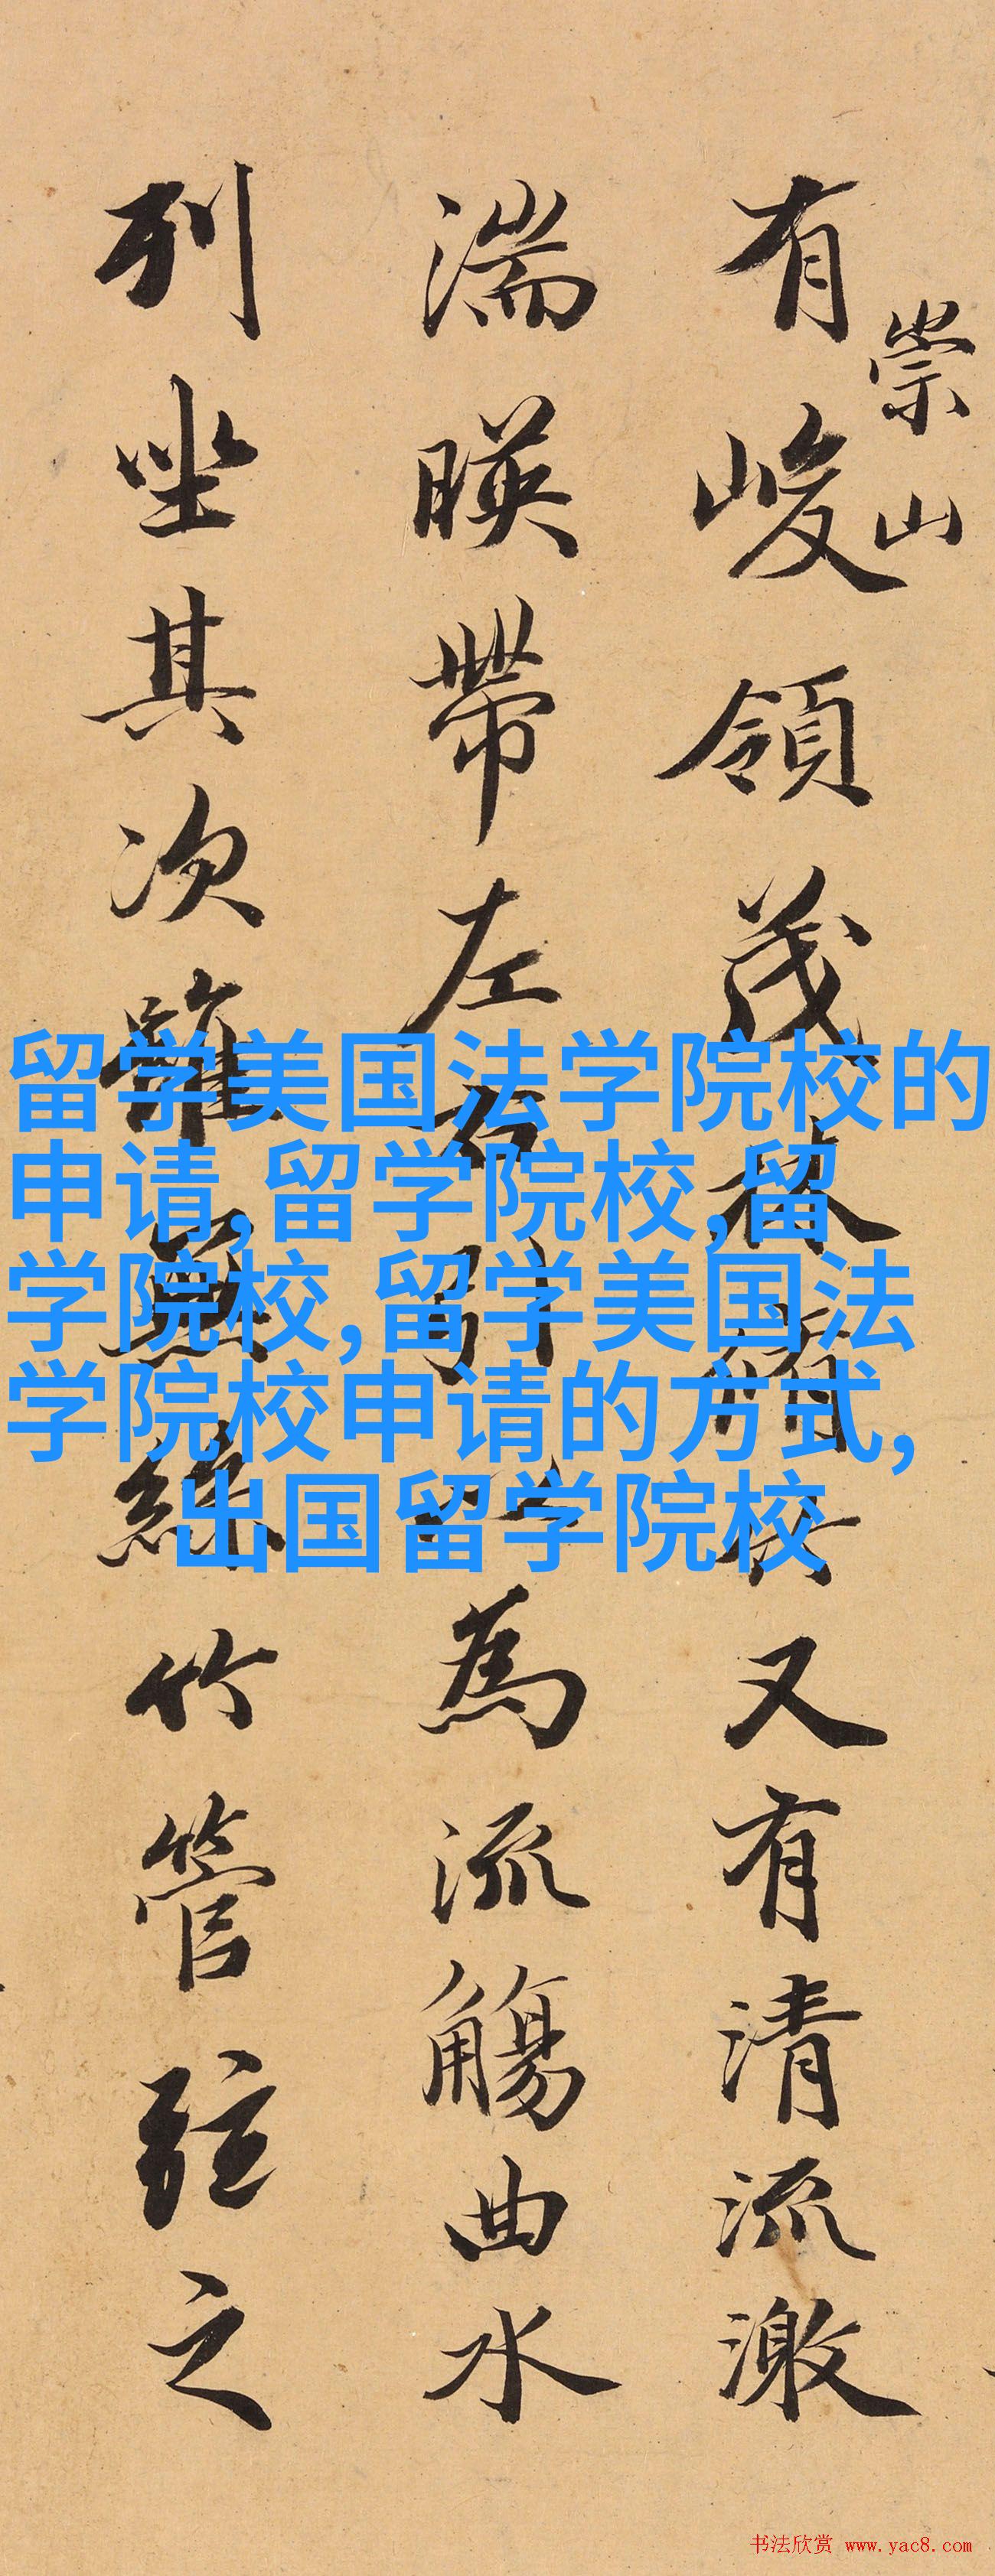 崇山
有峻領茂林脩又有清流激
湍暎帶左右引為流觴曲水
列坐其次雖無絲竹管弦之
留学美国法学院校的
申请,留学院校,留
学院校,留学美国法
学院校申请的方式,
出国留学院校
书法欣赏 www.yac8.com